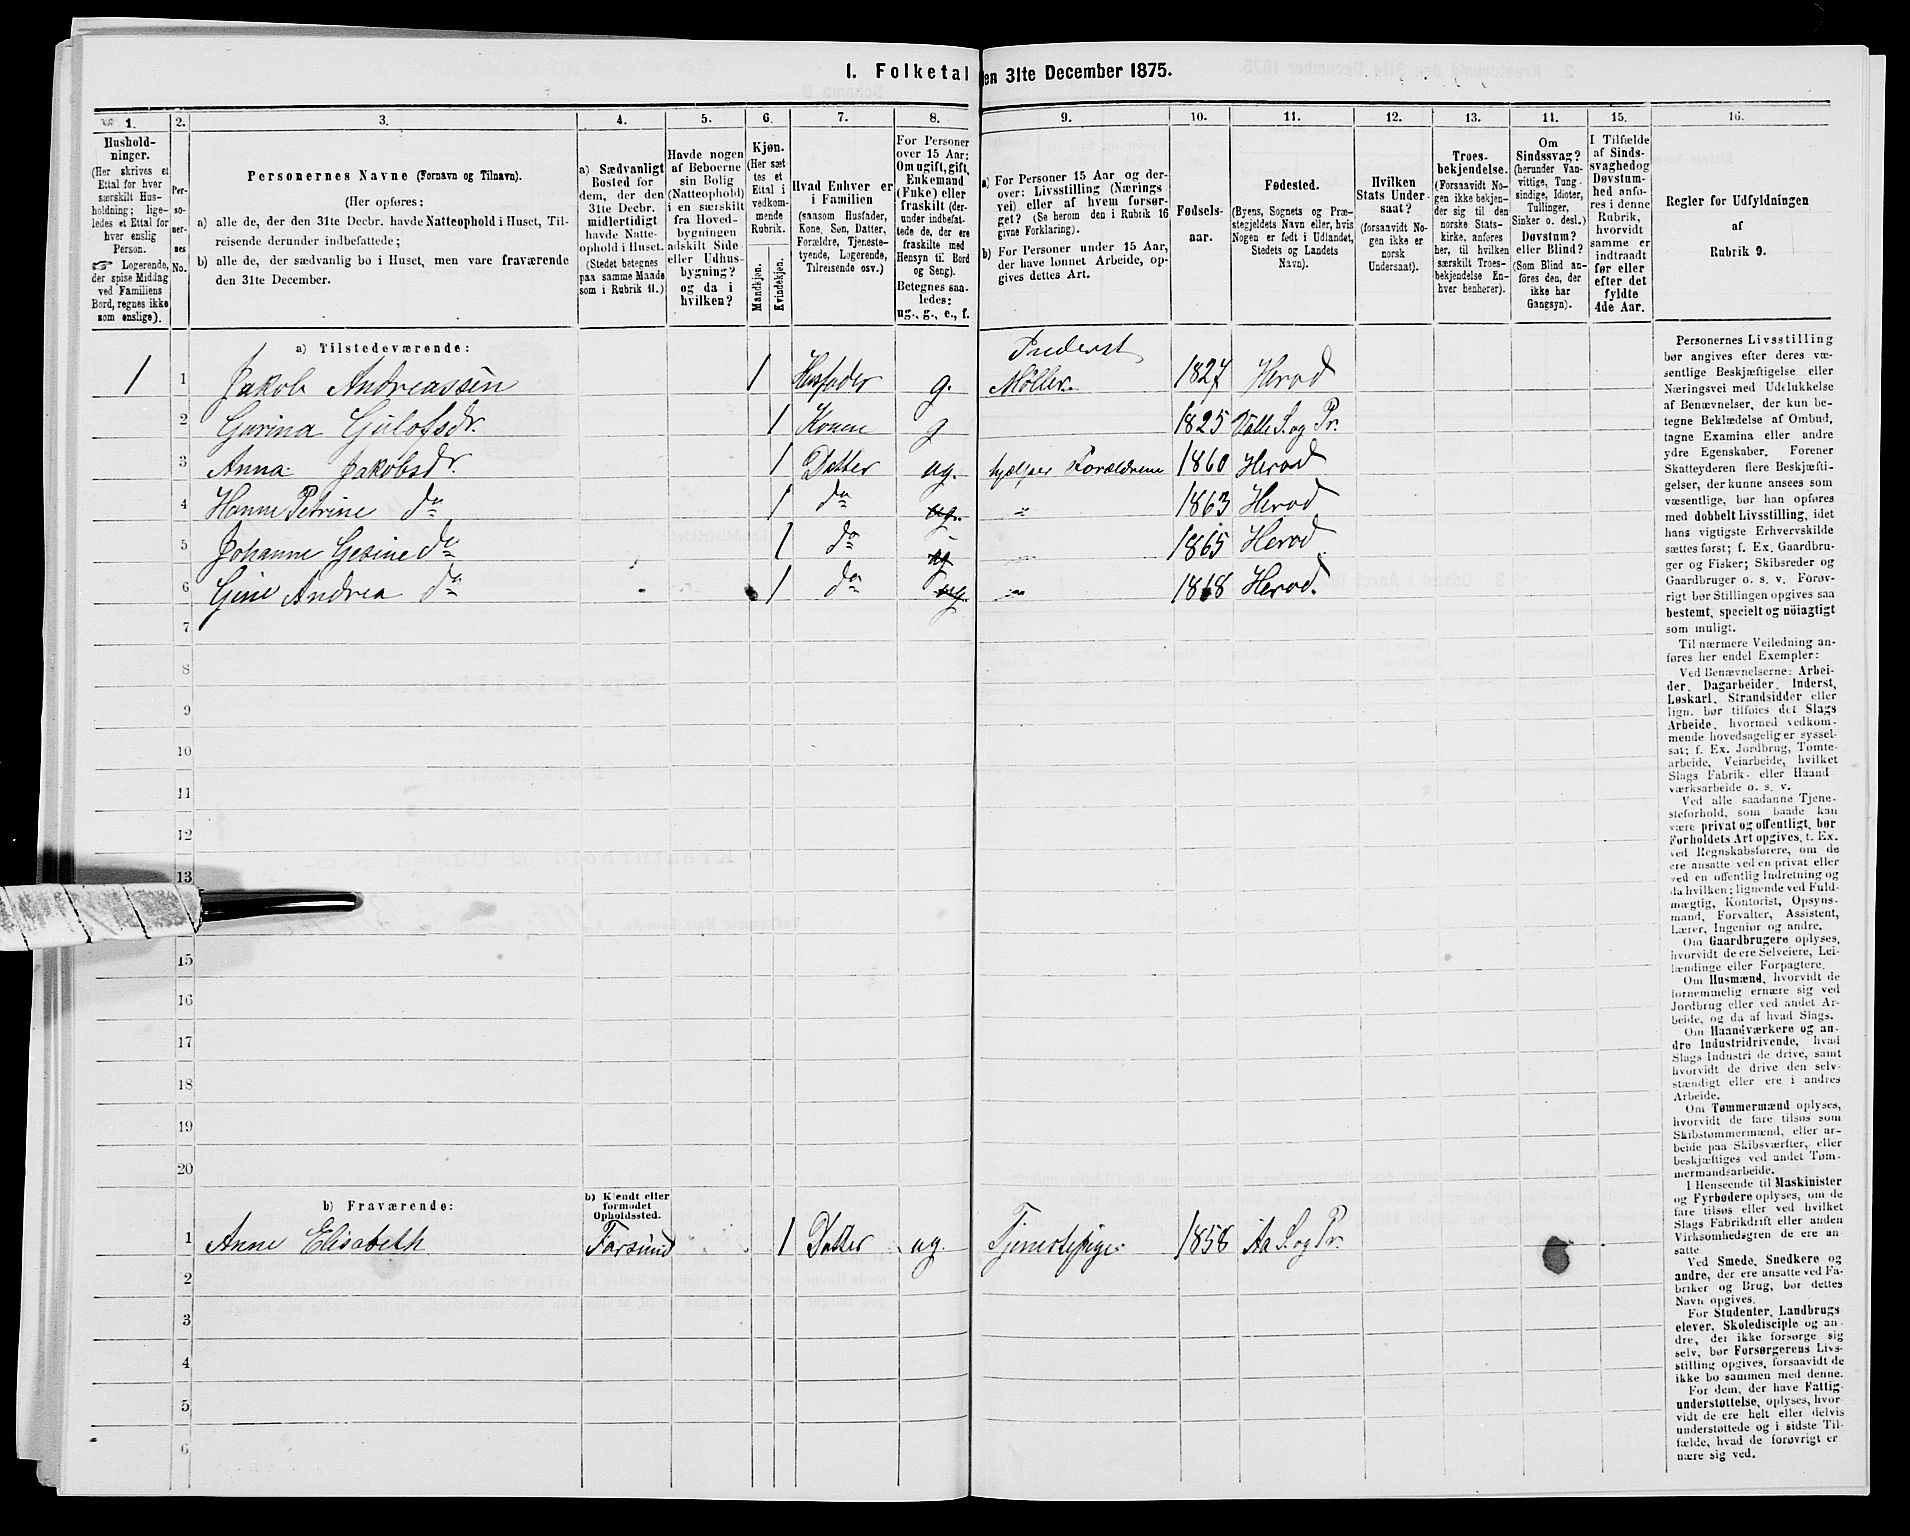 1. Folketal
en 31te December 1875.
1.
2.
3.
4.
5.
6.
7.
8.
9.
10.
11.
12.
13.
11.
15.
16.
Hushold-
ninger.
(Her skrives et
Ettal for hver
særskilt Hus-
holdning; lige-
ledes et Ettal for
hver enslig
Person.
☞ Logerende,
der spise Middag
ved Familiens
Bord, regnes ikke
som enslige).
Per-
so-
ner-
nes
No.
Personernes Navne (Fornavn og Tilnavn).
(Her opføres:
a) alle de, der den 31te Decbr. havde Natteophold i Huset, Til-
reisende derunder indbefattede;
b) alle de, der sædvanlig bo i Huset, men vare fraværende
den 31te December.
a) Sædvanligt
Bosted for
dem, der den
31te Decbr.
midlertidigt
havde Natte-
ophold i Huset.
(Stedet betegnes
paa samme Maade
som i Rubrik 11.)
Havde nogen
af Beboerne
sin Bolig
(Natteophold)
i en særskilt
fra Hoved-
bygningen
adskilt Side-
eller Udhus-
bygning?
og da i
hvilken?
Kjøn.
(Her sæt
tes et
Ettal i
vedkom-
mende
Rubrik.
Mandkjøn.
Kvindekjøn.
Hvad Enhver er
i Familien
(saasom Husfader,
Kone, Søn, Datter,
Forældre, Tjeneste-
tyende, Logerende,
Tilreisende osv.)
For Personer
over 15 Aar:
Om ugift, gift,
Enkemand
(Enke) eller
fraskilt (der-
under indbefat-
tede de, der ere
fraskilte med
Hensyn til Bord
og Seng).
Betegnes saa-
ledes:
ug., g., e., f.
a) For Personer 15 Aar og der-
over: Livsstilling (Nærings
vei) eller af hvem forsør-
get? (Se herom den i Rubrik 16
givne Forklaring).
b) For Personer under 15 Aar,
der have lønnet Arbeide, op-
gives dettes Art.
Fødsels-
aar.
Fødested.
(Byens, Sognets og Præ-
stegjeldets Navn eller, hvis
Nogen er født i Udlandet,
Stedets og Landets
Navn).
Hvilken
Stats Under-
saat?
(forsaavidt No-
gen ikke er
norsk
Undersaat).
Troes-
bekjendelse.
(Forsaavidt No-
gen ikke bekjen-
der sig til den
norske Stats-
kirke, anføres
her, til hvilken
særskilt Troes-
bekjendelse En-
hver henhører).
Om
Sindssvag?
(herunder Van-
vittige, Tung-
sindige, Idioter,
Tullinger,
Sinker o. desl.)
Døvstum?
eller Blind?
(Som Blind an-
føres den, der
ikke har
Gangsyn).
I Tilfælde
af Sinds-
svaghed og
Døvstum-
hed anfø-
res i denne
Rubrik,
hvorvidt
samme er
indtraadt
før eller
efter det
fyldte
4de Aar.
Regler for Udfyldningen
af
Rubrik 9.
a) Tilstedeværende:
Inderst
1 1 Jakob Andreassen 1 Husfader g. Møller. 1827 Herod
2 Gurina Gulofsdr. 1 Konen g 1825 Valle S. og Pr.
3 Anna Jakobsdr. 1 Datter ug. hjælper Forældrene 1860 Herod
4 Hanne Petrine do 1 do ug. " 1863 Herod
5 Johanne Gesine do 1 do ug " 1865 Herod
6 Gine Andrea do 1 do ug. " 1868 Herod.
7
8
9
10
11
12
13
15
16
17
18
19
20
b) Fraværende:
b) Kjendt eller
formodet
Opholdssted.
1 Anne Elisabeth Farsund 1 Datter ug. Tjenestepige 1858 Aa S. og Pr.
2
3
4
5
6
Personernes Livsstilling
bør angives efter deres væ-
sentlige Beskjæftigelse eller
Næringsvei med Udelukkelse
af Benævnelser, der kun be-
tegne Beklædelse af Ombud,
tagne Examina eller andre
ydre Egenskaber. Forener
Skatteyderen flere Beskjæfti-
gelser, der kunne ansees som
væsentlige, bør han opføres
med dobbelt Livsstilling, idet
hans vigtigste Erhvervskilde
sættes først; f. Ex. Gaardbru-
ger og Fisker; Skibsreder og
Gaardbruger o. s. v. Forøv-
rigt bør Stillingen opgives saa
bestemt, specielt og nöiagtigt
som muligt.
Til nærmere Veiledning an-
føres her endel Exempler:
Ved Benævnelserne: Arbei-
der, Dagarbeider, Inderst,
Løskarl, Strandsidder eller
lign. bør tilføies det Slags
Arbeide, hvormed vedkom-
mende hovedsagelig er syssel-
sat; f. Ex. Jordbrug, Tomte-
arbeide, Veiarbeide, hvilket
Slags Fabrik- eller Haand
værksarbeide o. s. v.
Ved alle saadanne Tjene-
steforhold, som baade kan
være privat og offentligt, bør
Forholdets Art opgives, t. Ex.
ved Regnskabsførere, om de
ere ansatte ved en privat eller
ved en offentlig Indretning og
da hvilken; lignende ved Fuld-
mægtig, Kontorist, Opsyns-
mand, Forvalter, Assistent,
Lærer, Ingeniør og andre.
Om Gaardbrugere oplyses,
hvorvidt de ere Selveiere, Lei-
lændinge eller Forpagtere.
Om Husmænd, hvorvidt de
fornemmelig ernære sig ved
Jordbrug eller ved andet Ar-
beide, og da af hvad Slags.
Om Haandværkere og an-
dre Industridrivende, hvad
Slags Industri de drive, samt
hvorvidt de drive den selv-
stændigt eller ere i andres
Arbeide.
Om Tømmermænd oplyses,
hvorvidt de fare tilsøs som
Skibstømmermænd, eller ar-
beide paa Skibsværfter, eller
beskjæftiges ved andet Tøm-
mermandsarbeide.
I Henseende til Maskinister
og Fyrbødere oplyses, om de
fare tilsøs eller ved hvilket
Slags Fabrikdrift eller anden
Virksomhedsgren de ere an-
satte
Ved Smede, Snedkere og
andre, der ere ansatte ved Fa-
briker og Brug, bør dettes
Navn opgives.
For Studenter, Landbrugs
elever, Skoledisciple og an-
dre, der ikke forsørge sig
selv, bør Forsørgerens Livs-
stilling opgives, forsaavidt de
ikke bo sammen med denne.
For dem, der have Fattig-
understøttelse, oplyses, hvor-
vidt de ere helt eller delvis
understøttede og i sidste Til-
fælde, hvad de forøvrigt er
nære sig ved.